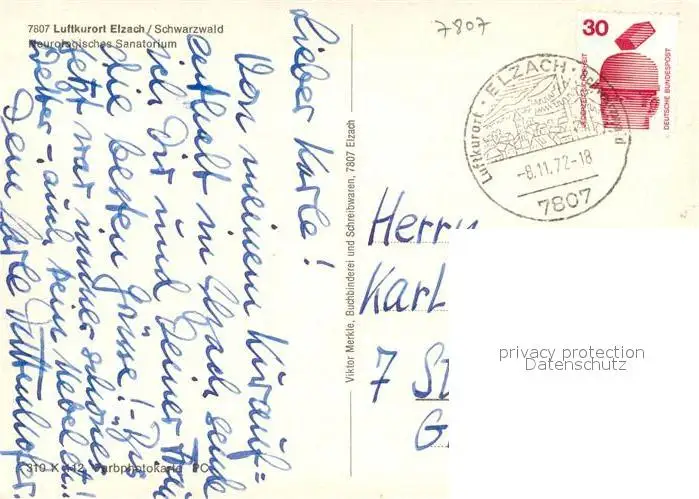 7807 Luftkurort Elzach/Schwarzwald
Neurologisches Sanatorium
Lieber Karle!
Von meinem Kurauf=
enthalt in Elzach sende
ich Dir und Deiner
die besten Grüsse! - Bis
jetzt war immer schönes
Wetter - auch kein Nebel da!!
Dein Karle
310 K 112 Farbphotokarte PC
Viktor Merkle, Buchbinderei und Schreibwaren, 7807 Elzach
7807
30
DEUTSCHE BUNDESPOST
Luftkurort · ELZACH ·
-8.11.72-18
7807
Herrn
Karl
7 St
G
privacy protection
Datenschutz